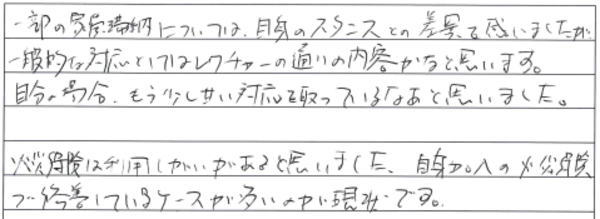 一部の家賃滞納については、自身のスタンスとの差異を感いましたが
一般的な対応としてはレクチャーの通りの内容かなと思います。
自分の場合、もう少し甘い対応を取っているなあと思いました。
火災保険は利用しがいがあると思いました、自身加入の火災保険
で修善しているケースが多いのが現状です。